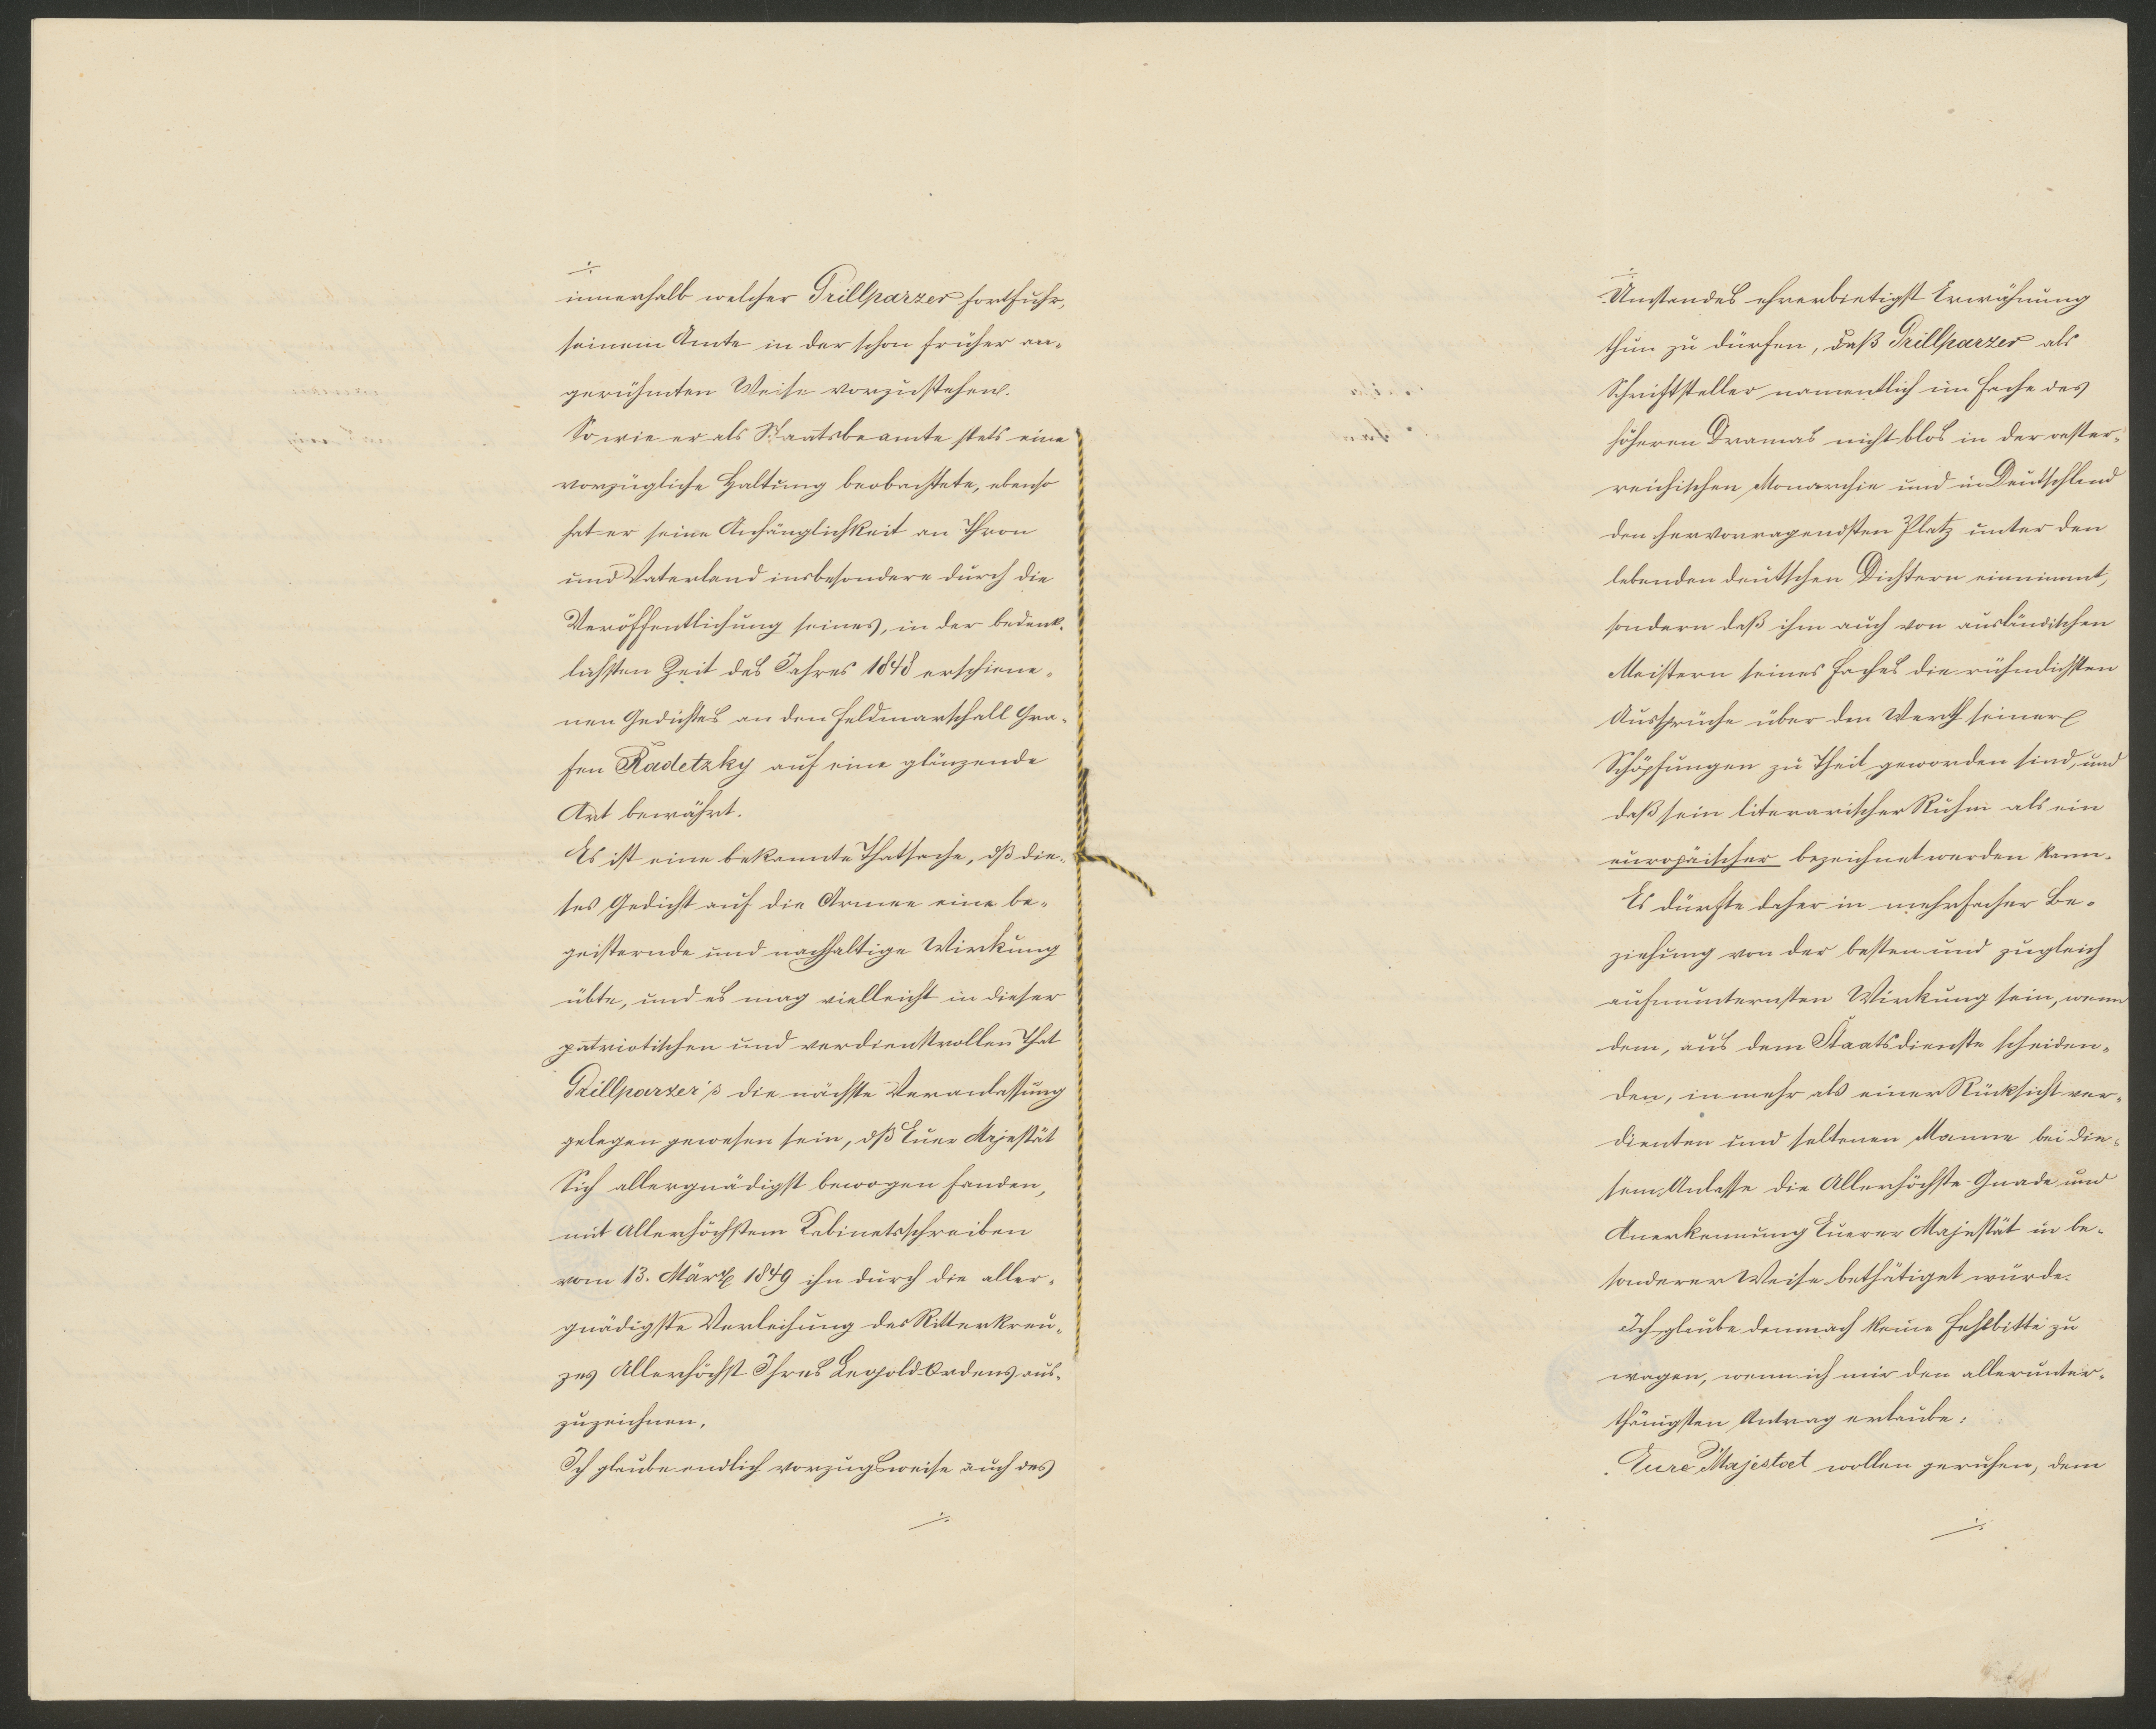 ./.
innerhalb welcher Grillparzer fortfuhr,
seinem Amte in der schon früher an-
gerühmten Weise vorzustehen.
So wie er als Staatsbeamte stets eine
vorzügliche Haltung beobachtete, ebenso
hat er seine Anhänglichkeit an Thron
und Vaterland insbesondere durch die
Veröffentlichung seines, in der bedenk-
lichsten Zeit des Jahres 1848 erschiene-
nen Gedichtes an den Feldmarschall Gra-
fen Radetzky auf eine glänzende
Art bewährt.
Es ist eine bekannte Thatsache, dß die-
ses Gedicht auf die Armee eine be-
geisternde und nachhaltige Wirkung
übte, und es mag vielleicht in dieser
patriotischen und verdienstvollen That
Grillparzer's die nächste Veranlassung
gelegen gewesen sein, dß Euer Majestät
Sich allergnädigst bewogen fanden,
mit Allerhöchstem Kabinetsschreiben
vom 13. März 1849 ihn durch die aller-
gnädigste Verleihung des Ritterkreu-
zes Allerhöchst Ihres Leopold-Ordens aus-
zuzeichnen.
Ich glaube endlich vorzugsweise auch des
./.
./.
Umstandes ehrerbietigst Erwähnung
thun zu dürfen, daß Grillparzer als
Schriftsteller namentlich im Fache des
höheren Dramas nicht blos in der oester-
reichischen Monarchie und in Deutschland
den hervorragendsten Platz unter den
lebenden deutschen Dichtern einnimmt,
sondern daß ihm auch von ausländischen
Meistern seines Faches die rühmlichsten
Aussprüche über den Werth seiner
Schöpfungen zu Theil geworden sind, und
daß sein literarischer Ruhm als ein
europäischer bezeichnet werden kann.
Es dürfte daher in mehrfacher Be-
ziehung von der besten und zugleich
aufmunternsten Wirkung sein, wenn
dem, aus dem Staatsdienste scheiden-
den, in mehr als einer Rücksicht ver-
dienten und seltenen Manne bei die-
sem Anlasse die Allerhöchste Gnade und
Anerkennung Euerer Majestät in be-
sonderer Weise bethätiget würde.
Ich glaube demnach keine Fehlbitte zu
wagen, wenn ich mir den allerunter-
thänigsten Antrag erlaube:
Eure Majestaet wollen geruhen, dem
./.